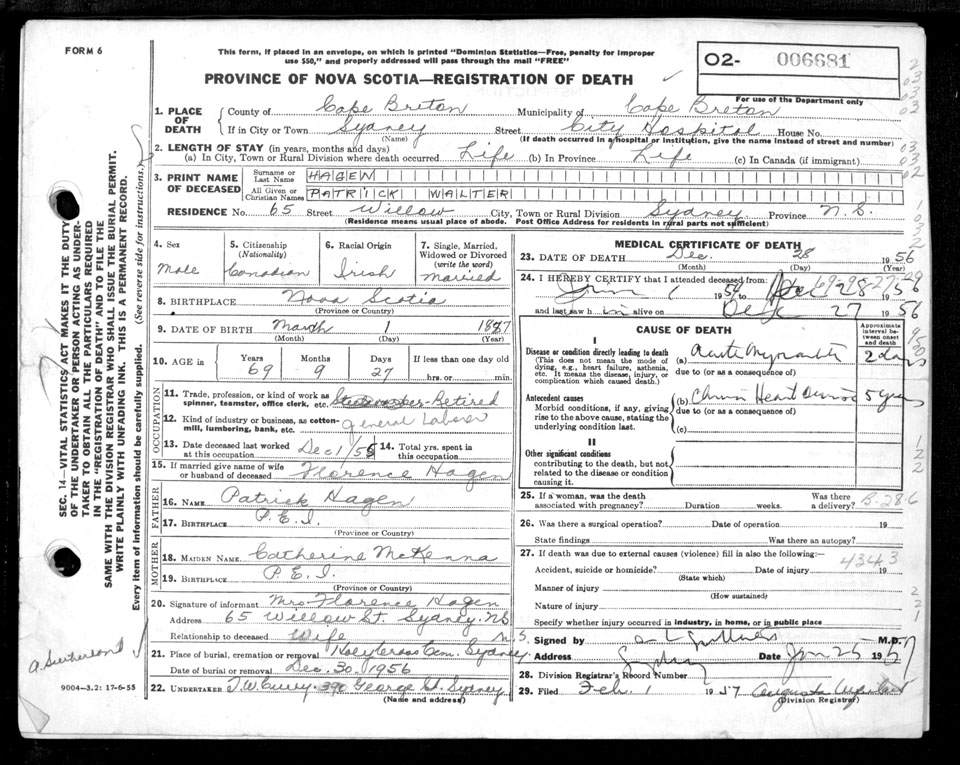 FORM 6
This form, if placed in an envelope, on which is printed "Dominion Statistics—Free, penalty for improper
use $50," and properly addressed will pass through the mail "FREE"
PROVINCE OF NOVA SCOTIA—REGISTRATION OF DEATH
02- 006681
For use of the Department only
1. PLACE OF DEATH County of Cape Breton Municipality of Cape Breton
If in City or Town Sydney Street City Hospital House No.
(Name) (If death occurred in a hospital or institution, give the name instead of street and number)
2. LENGTH OF STAY (in years, months and days)
(a) In City, Town or Rural Division where death occurred Life (b) In Province Life (c) In Canada (if immigrant)
3. PRINT NAME OF DECEASED Surname or Last Name HAGEN
All Given or Christian Names PATRICK WALTER
RESIDENCE No. 65 Street Willow City, Town or Rural Division Sydney Province N.S.
(Residence means usual place of abode. Post Office Address for residents in rural parts not sufficient)
4. Sex Male
5. Citizenship (Nationality) Canadian
6. Racial Origin Irish
7. Single, Married, Widowed or Divorced (write the word) Married
8. BIRTHPLACE Nova Scotia
(Province or Country)
9. DATE OF BIRTH March 1 1887
(Month) (Day) (Year)
10. AGE in Years 69 Months 9 Days 27 If less than one day old hrs. or min.
OCCUPATION
11. Trade, profession, or kind of work as spinner, teamster, office clerk, etc. Retired
12. Kind of industry or business, as cotton-mill, lumbering, bank, etc. general labour
13. Date deceased last worked at this occupation Dec 1/55
14. Total yrs. spent in this occupation
15. If married give name of wife or husband of deceased Florence Hagen
FATHER
16. NAME Patrick Hagen
17. BIRTHPLACE P.E.I.
MOTHER
18. MAIDEN NAME Catherine McKenna
19. BIRTHPLACE P.E.I.
(Province or Country)
20. Signature of informant Mrs Florence Hagen
Address 65 Willow St. Sydney N.S.
Relationship to deceased Wife
21. Place of burial, cremation or removal Holy Cross Cem. Sydney N.S.
Date of burial or removal Dec. 30, 1956
22. UNDERTAKER T.W. Curry - 390 George St. Sydney
(Name and address)
MEDICAL CERTIFICATE OF DEATH
23. DATE OF DEATH Dec. 28 1956
(Month) (Day) (Year)
24. I HEREBY CERTIFY that I attended deceased from:
1 1954 to 1956
and last saw h im alive on Dec 27 1956
CAUSE OF DEATH
Approximate interval between onset and death
I
Disease or condition directly leading to death
(This does not mean the mode of dying, e.g., heart failure, asthenia, etc. It means the disease, injury, or complication which caused death.)
(a) Acute 2 days
due to (or as a consequence of)
Antecedent causes
Morbid conditions, if any, giving rise to the above cause, stating the underlying condition last.
(b) Heart Disease 5 years
due to (or as a consequence of)
(c)
II
Other significant conditions
contributing to the death, but not related to the disease or condition causing it.
25. If a woman, was the death associated with pregnancy? Duration weeks. Was there a delivery? B-286
26. Was there a surgical operation? Date of operation 19
State findings Was there an autopsy?
27. If death was due to external causes (violence) fill in also the following:—
4343
Accident, suicide or homicide? Date of injury 19
(State which)
Manner of injury
(How sustained)
Nature of injury
Specify whether injury occurred in industry, in home, or in public place
Signed by M.D.
Address Sydney Date Jan 25 1957
28. Division Registrar's Record Number
29. Filed Feb. 1 1957 Augusta
(Division Registrar)
SEC. 14—VITAL STATISTICS ACT MAKES IT THE DUTY
OF THE UNDERTAKER OR PERSON ACTING AS UNDER-
TAKER TO OBTAIN ALL THE PARTICULARS REQUIRED
IN THE "REGISTRATION OF DEATH" AND TO FILE THE
SAME WITH THE DIVISION REGISTRAR WHO SHALL ISSUE THE BURIAL PERMIT.
WRITE PLAINLY WITH UNFADING INK. THIS IS A PERMANENT RECORD.
Every item of information should be carefully supplied. (See reverse side for instructions.)
A Sutherland
9004—3.2: 17-6-55